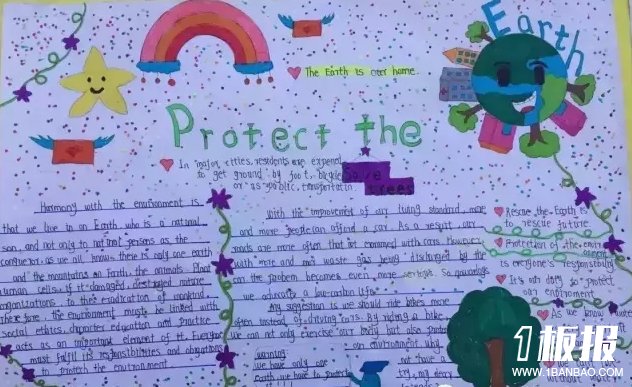 Earth
♥ The Earth is our home.
Protect the
♥ In major cities, residents are
to get ground by foot, bicycle
or as public transportation.
Save
trees
Harmony with the environment is
that we live in an Earth who is a natural
son, and not only to not persons as the
conqueror, as we all know, there is only one earth
and the mountains on Earth, the animals. Plant
human cells, if it damaged, destroyed nature
organizations, to the eradication of mankind.
Therefore, the environment must be linked with
social ethics, character education and practice
acts as an important element of it. Everyone
must fulfil its responsibilities and obligations
to protect the environment.
With the improvement of our living standard, more
and more people can afford a car. As a result, our
roads are more often that not crammed with cars. However,
with more and more waste gas being discharged by the
the problem becomes even more serious. So nowadays
we advocate a low-carbon life.
My suggestion is we should ride bikes more
often instead of driving cars. By riding a bike,
we can not only exercise our body but also protect
our environment. Why
not
try, my dear
warning
We have only one
earth, we have to protect
♥ Rescue the Earth is
to rescue future
♥ Protection of the envir
onment
is everyone's responsibility
♥ It's our duty to protect
our environment
♥ As we know
water
we can't
without
1板报
WWW.1BANBAO.COM